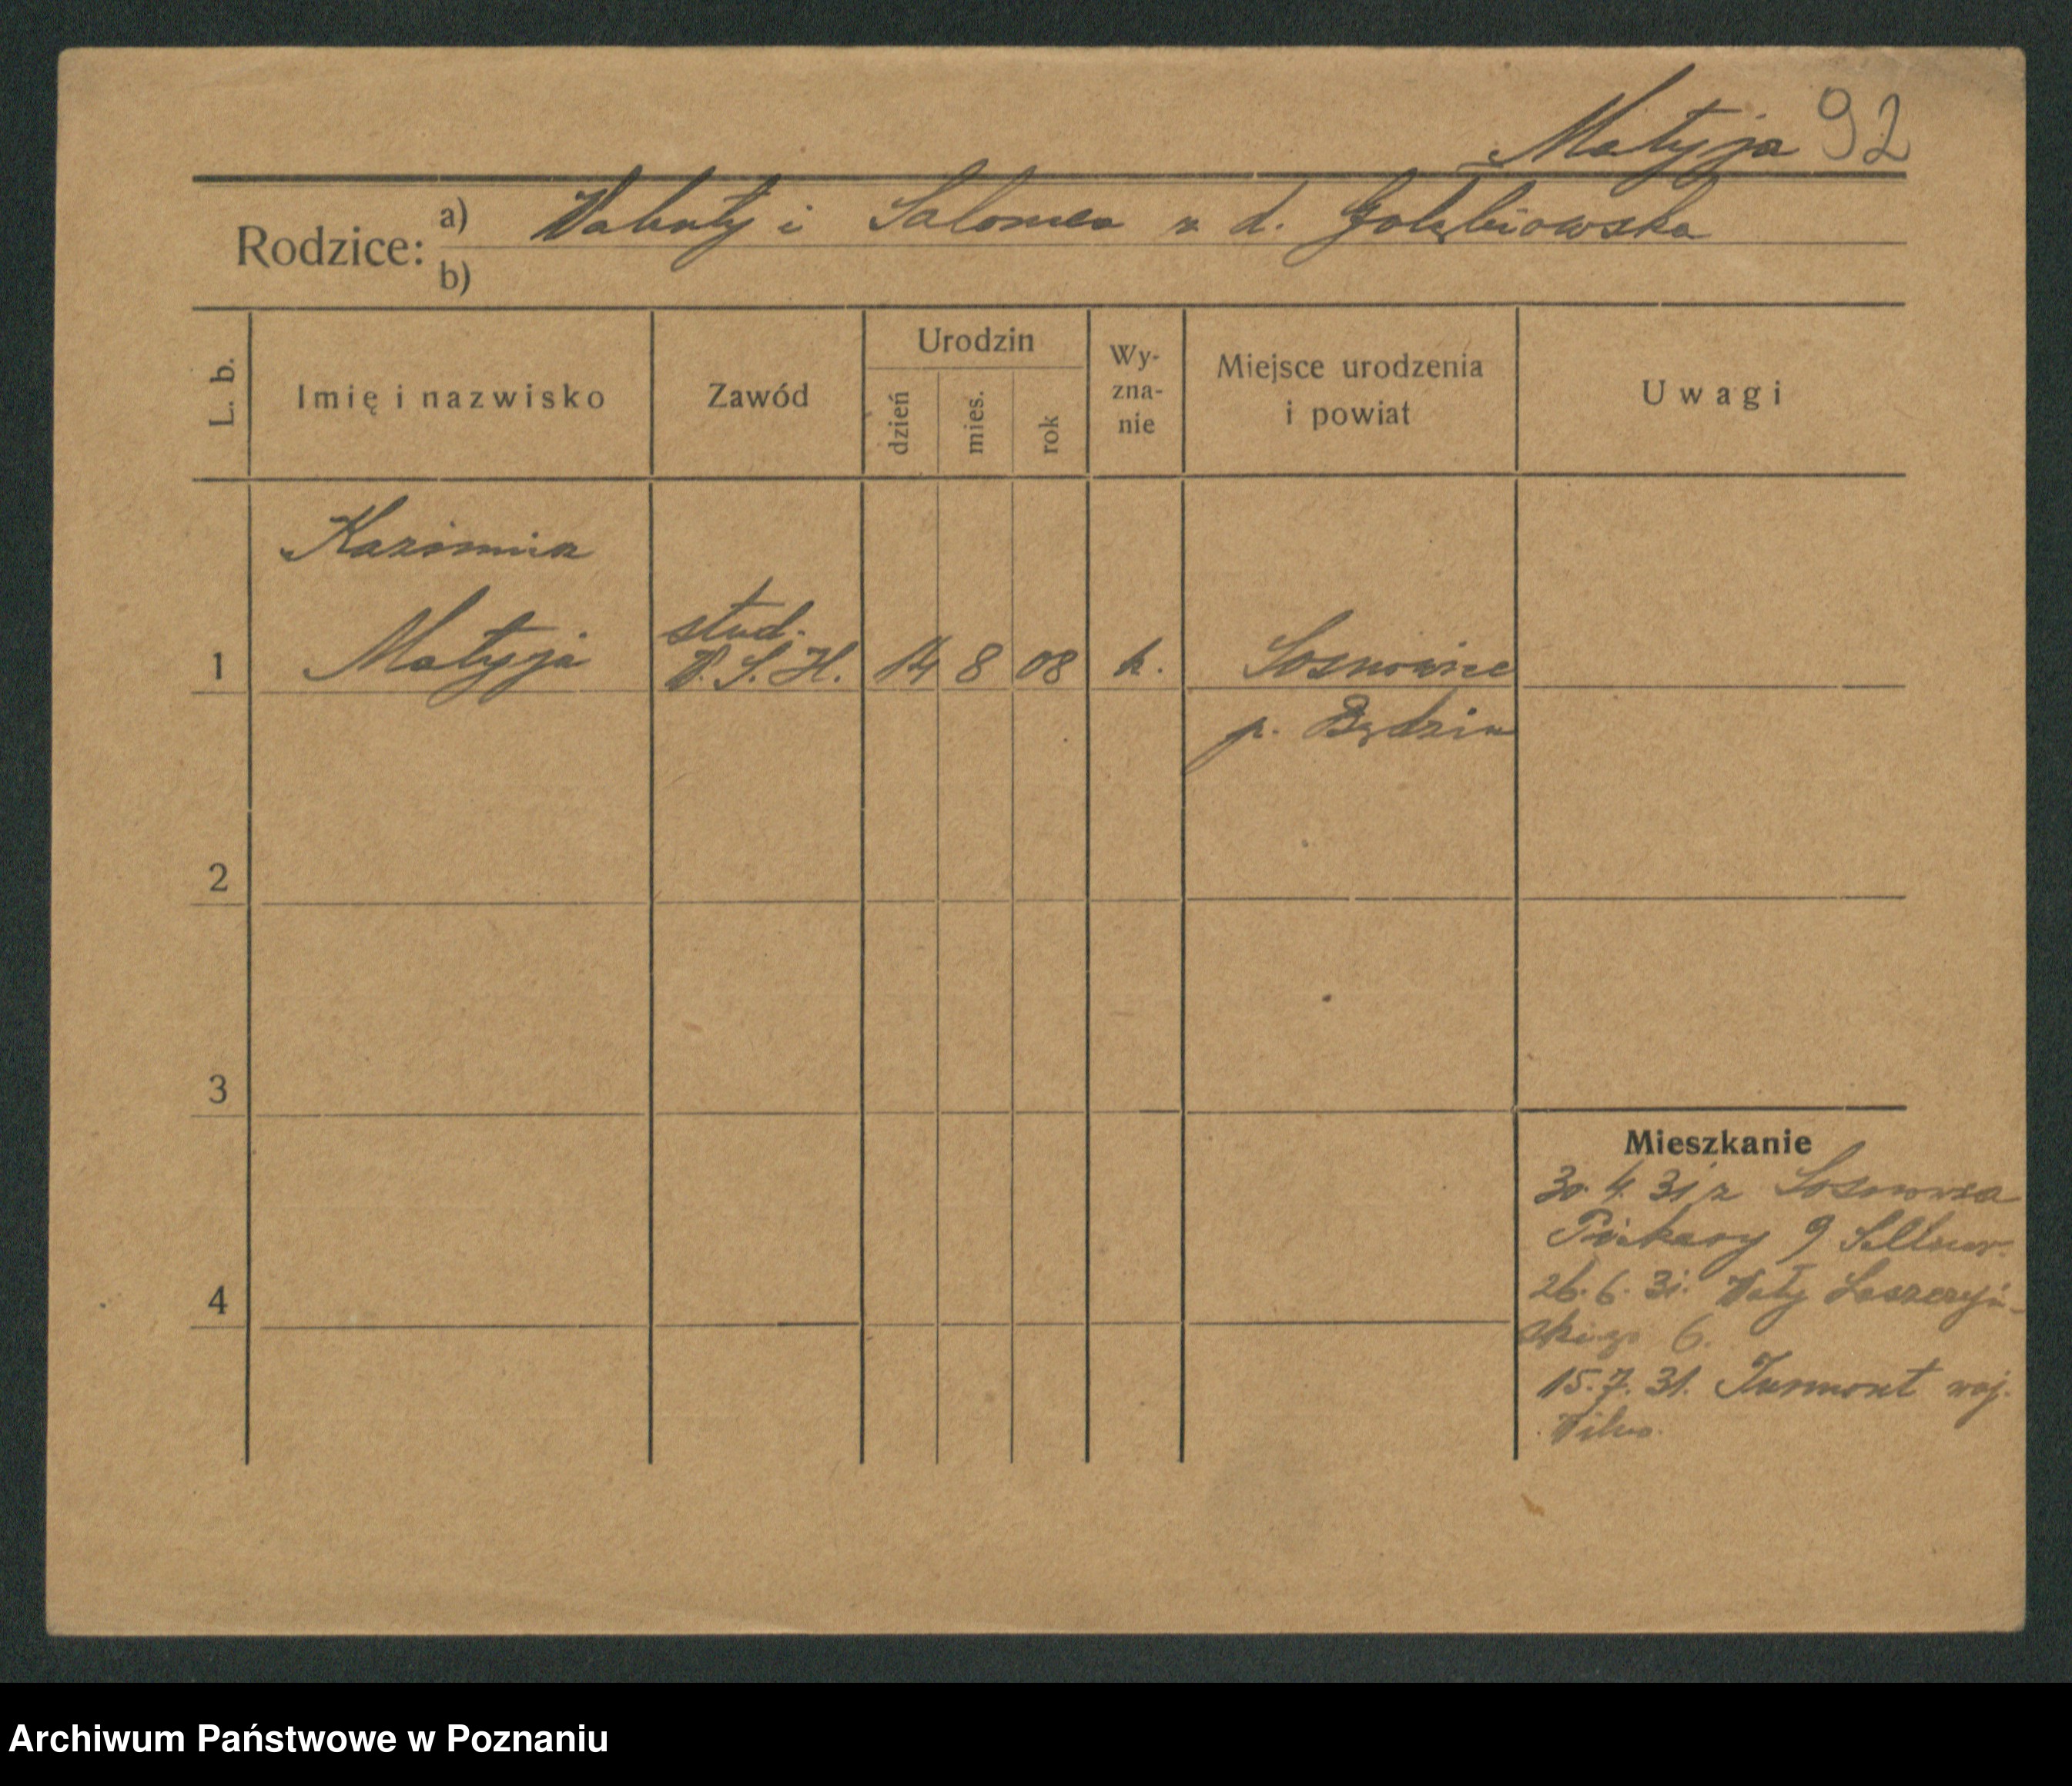 Matyja 92
Rodzice: a) Walenty i Salomea z d. Gołębiowska
b)
L. b. Imię i nazwisko Zawód Urodzin dzień mies. rok Wy-zna-nie Miejsce urodzenia i powiat Uwagi
Kazimierz
stud.
1 Matyja W.S.H. 14 8 08 k. Sosnowice
p. Będzin
2
3
Mieszkanie
30.4.31 z Sosnowca
Piekary 9
4
26.6.31. Wały Leszczyń-
skiego 6.
15.7.31. Turmont woj.
Wilno.
Archiwum Państwowe w Poznaniu